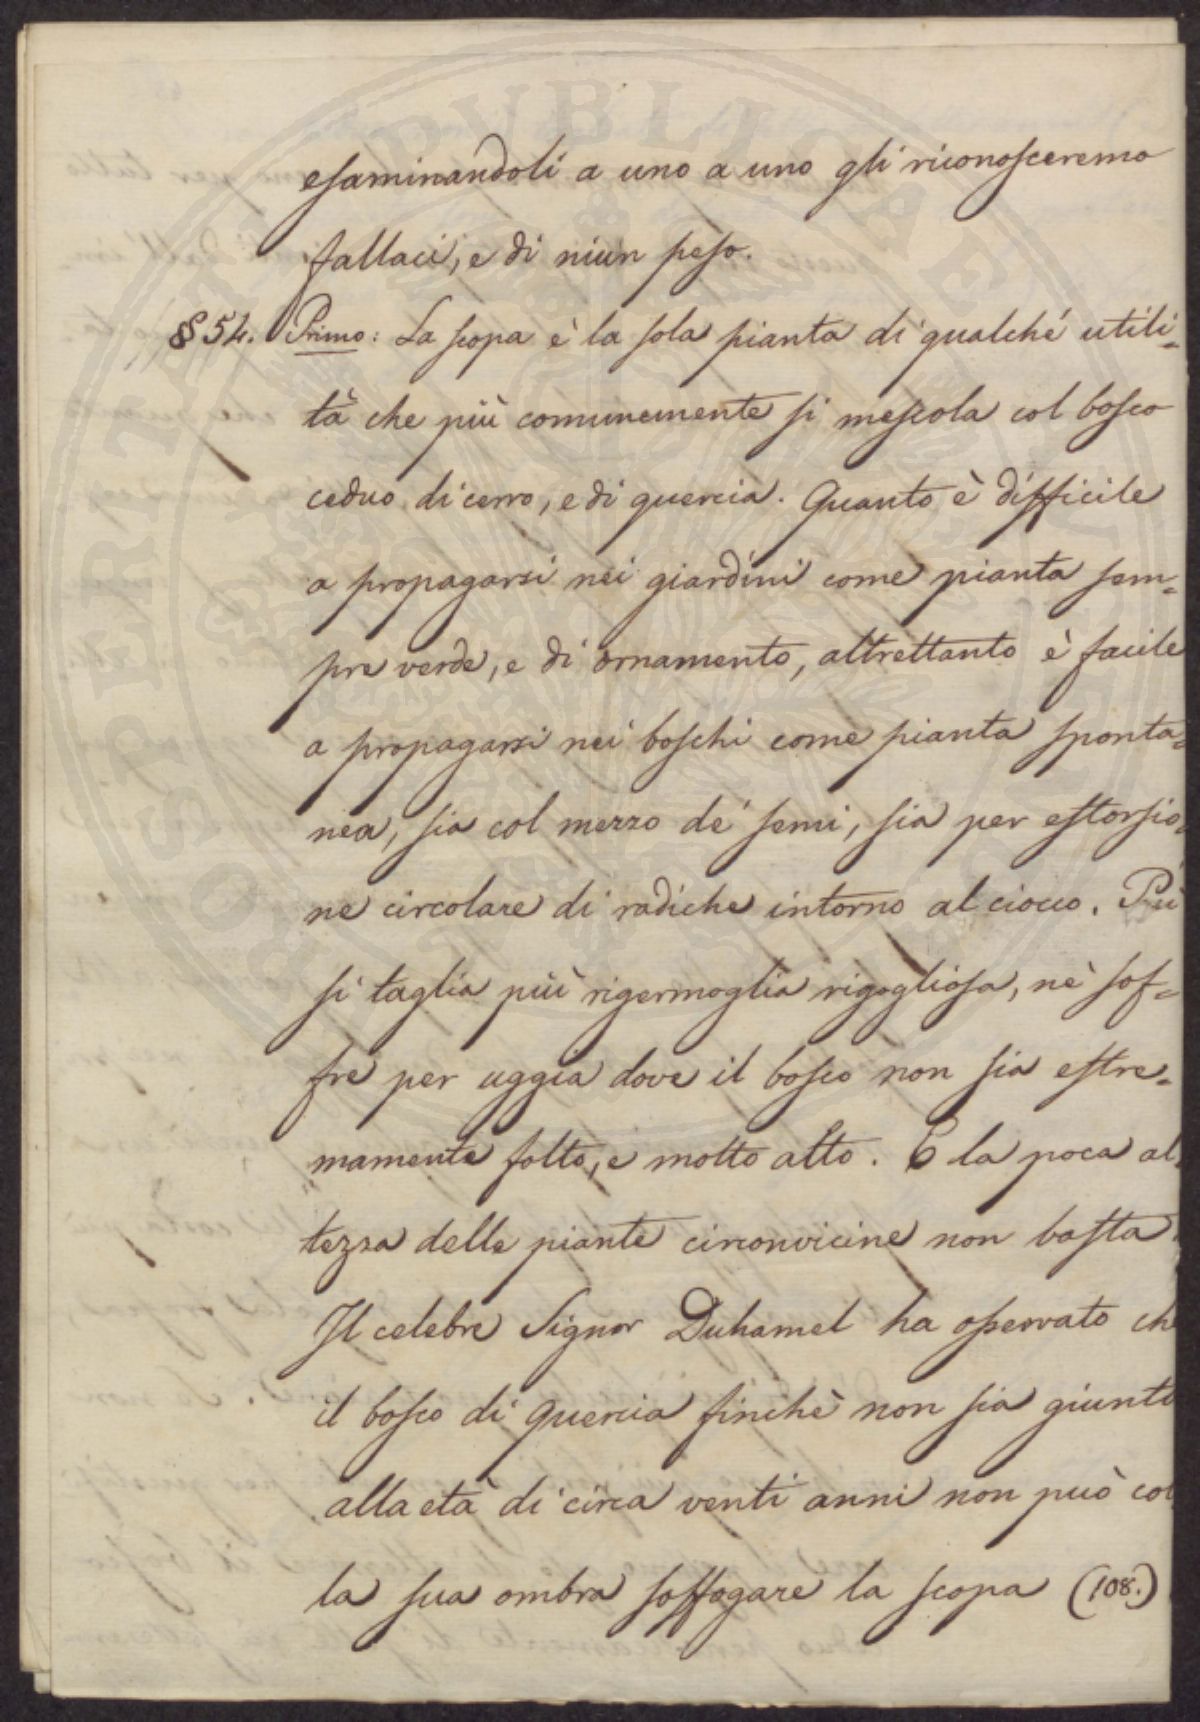 esaminandoli a uno a uno gli riconosceremo
fallaci, e di niun peso.
§ 54. Primo: La scopa è la sola pianta di qualché utili=
tà che più comunemente si mescola col bosco
ceduo di cerro, e di quercia. Quanto è difficile
a propagarsi nei giardini come pianta sem=
pre verde, e di ornamento, altrettanto è facile
a propagarsi nei boschi come pianta sponta=
nea, sia col mezzo de' semi, sia per estorsio=
ne circolare di radiche intorno al ciocco. Più
si taglia più rigermoglia rigogliosa, nè sof=
fre per uggia dove il bosco non sia estre=
mamente folto, e molto alto. E la poca al=
tezza delle piante circonvicine non basta.
Il celebre Signor Duhamel ha osservato che
il bosco di quercia finchè non sia giunto
alla età di circa venti anni non può col
la sua ombra soffogare la scopa (108.)
PUBLICAE
PROSPERITATI